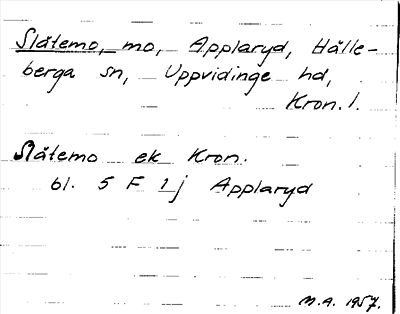 Slätemo, mo, Applaryd, Hälle-
berga sn, Uppvidinge hd,
Kron. l.
Slätemo ek Kron.
bl. 5 F 1 j Applaryd
M.A. 1957.